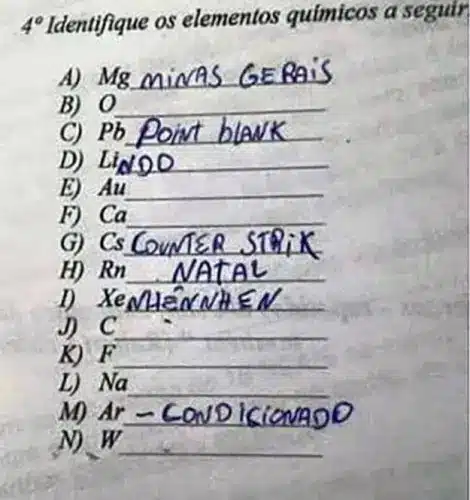 4º Identifique os elementos químicos a seguir
A) Mg MINAS GERAIS
B) O
C) Pb POINT blANK
D) LiNDO
E) Au
F) Ca
G) Cs COUNTER STRiK
H) Rn NATAL
I) XeNHENNHEN
J) C
K) F
L) Na
M) Ar - CONDICIONADO
N) W